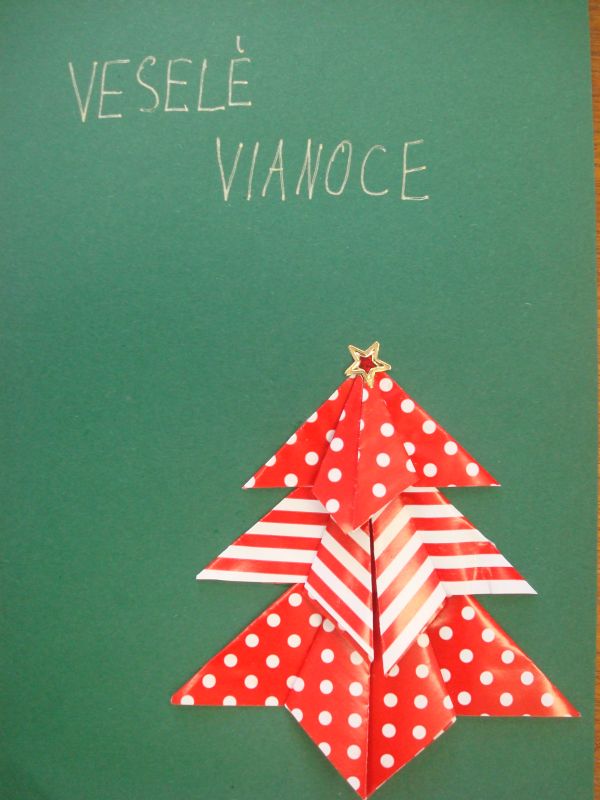 VESELÈ
VIANOCE